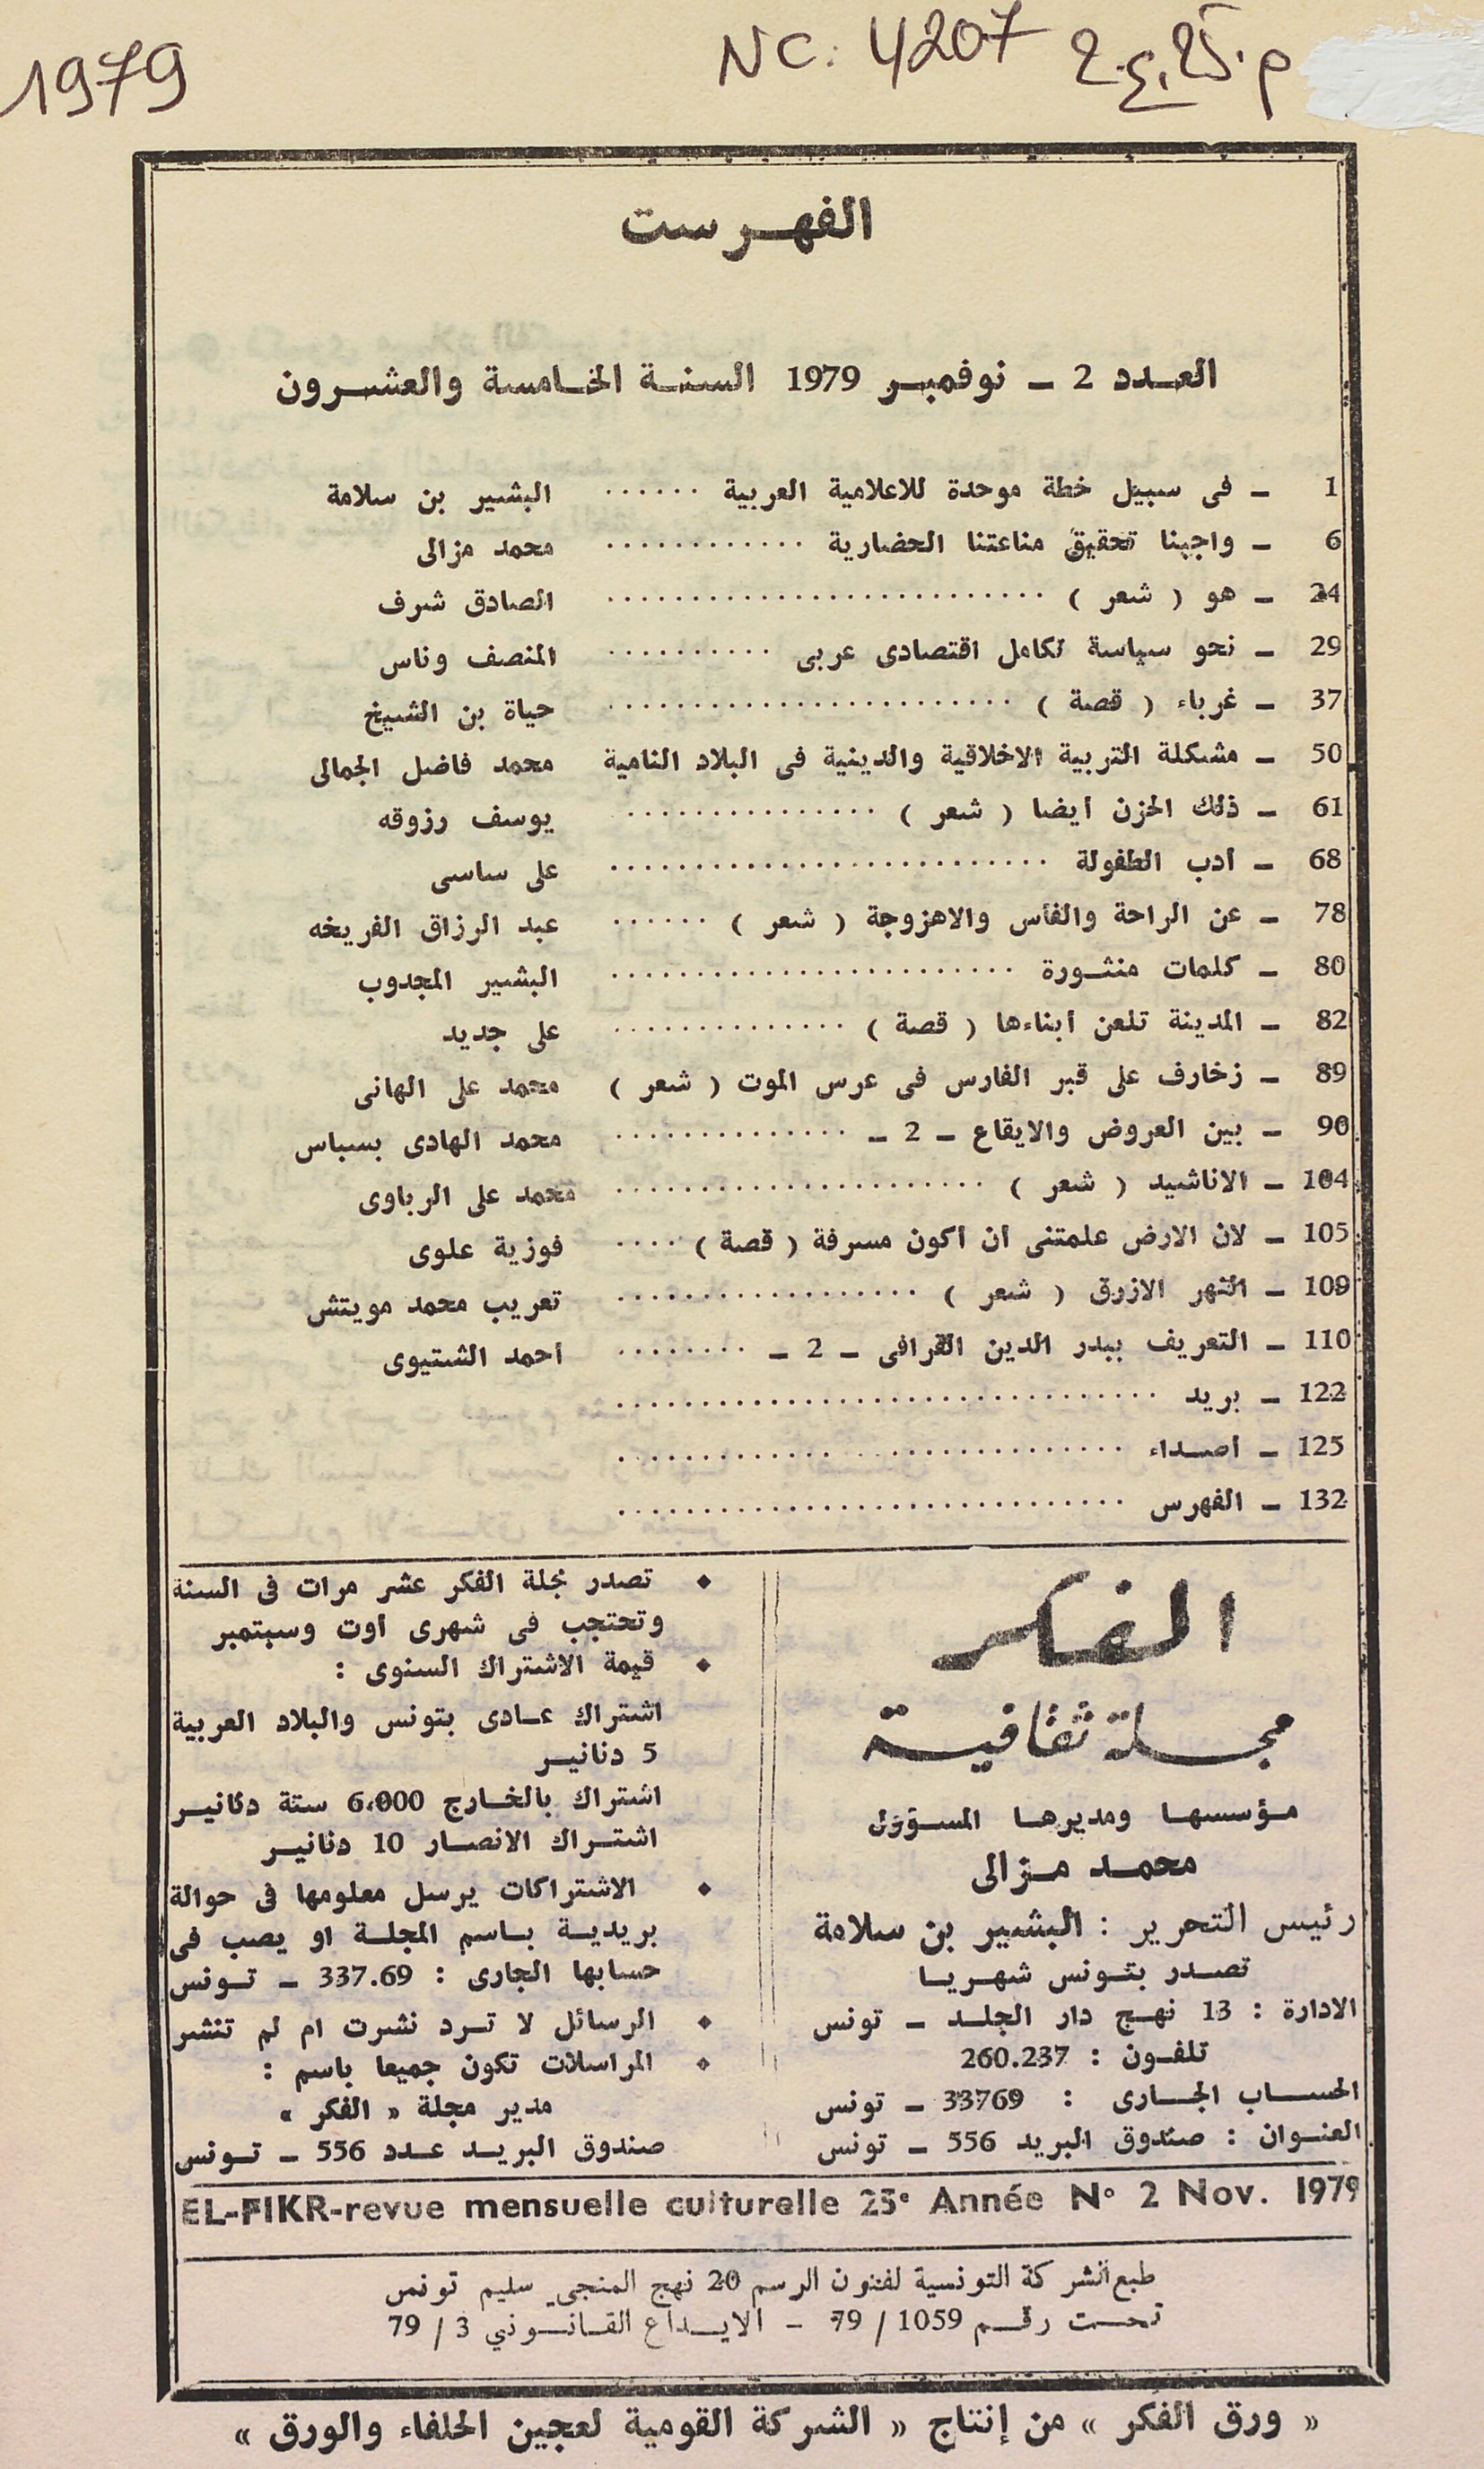 1979
NC: 4207
الفهرست
العدد 2 ـ نوفمبر 1979 السنة الخامسة والعشرون
1 ـ فى سبيل خطة موحدة للاعلامية العربية ...... البشير بن سلامة
6 ـ واجبنا تحقيق مناعتنا الحضارية ............ محمد مزالى
24 ـ هو ( شعر ) .......................... الصادق شرف
29 ـ نحو سياسة تكامل اقتصادى عربى .......... المنصف وناس
37 ـ غرباء ( قصة ) ........................ حياة بن الشيخ
50 ـ مشكلة التربية الاخلاقية والدينية فى البلاد النامية محمد فاضل الجمالى
61 ـ ذلك الحزن أيضا ( شعر ) ............... يوسف رزوقه
68 ـ أدب الطفولة .......................... على ساسى
78 ـ عن الراحة والفأس والاهزوجة ( شعر ) ...... عبد الرزاق الفريخه
80 ـ كلمات منثورة ........................ البشير المجدوب
82 ـ المدينة تلعن أبناءها ( قصة ) .............. على جديد
89 ـ زخارف على قبر الفارس فى عرس الموت ( شعر ) محمد على الهانى
90 ـ بين العروض والايقاع ـ 2 ـ .............. محمد الهادى بسباس
104 ـ الاناشيد ( شعر ) ...................... محمد على الرباوى
105 ـ لان الارض علمتنى أن أكون مسرفة ( قصة ) .... فوزية علوى
109 ـ النهر الازرق ( شعر ) .................. تعريب محمد مويتش
110 ـ التعريف ببدر الدين القرافى ـ 2 ـ ........ أحمد الشتيوى
122 ـ بريد ................................
125 ـ أصداء ..............................
132 ـ الفهرس ..............................
الفكر
مجلة ثقافية
مؤسسها ومديرها المسؤول
محمد مزالى
رئيس التحرير : البشير بن سلامة
تصدر بتونس شهريا
الادارة : 13 نهج دار الجلد ـ تونس
تلفون : 260.237
الحساب الجارى : 33769 ـ تونس
العنوان : صندوق البريد 556 ـ تونس
♦ تصدر مجلة الفكر عشر مرات فى السنة
وتحتجب فى شهرى أوت وسبتمبر
♦ قيمة الاشتراك السنوى :
اشتراك عادى بتونس والبلاد العربية
5 دنانير
اشتراك بالخارج 6،000 ستة دنانير
اشتراك الانصار 10 دنانير
♦ الاشتراكات يرسل معلومها فى حوالة
بريدية باسم المجلة او يصب فى
حسابها الجارى : 337.69 ـ تونس
♦ الرسائل لا ترد نشرت ام لم تنشر
♦ المراسلات تكون جميعا باسم :
مدير مجلة « الفكر »
صندوق البريد عدد 556 ـ تونس
EL-FIKR-revue mensuelle culturelle 25e Année N° 2 Nov. 1979
طبع الشركة التونسية لفنون الرسم 20 نهج المنجي سليم تونس
تحت رقم 1059 / 79 - الايداع القانوني 3 / 79
« ورق الفكر » من إنتاج « الشركة القومية لعجين الحلفاء والورق »